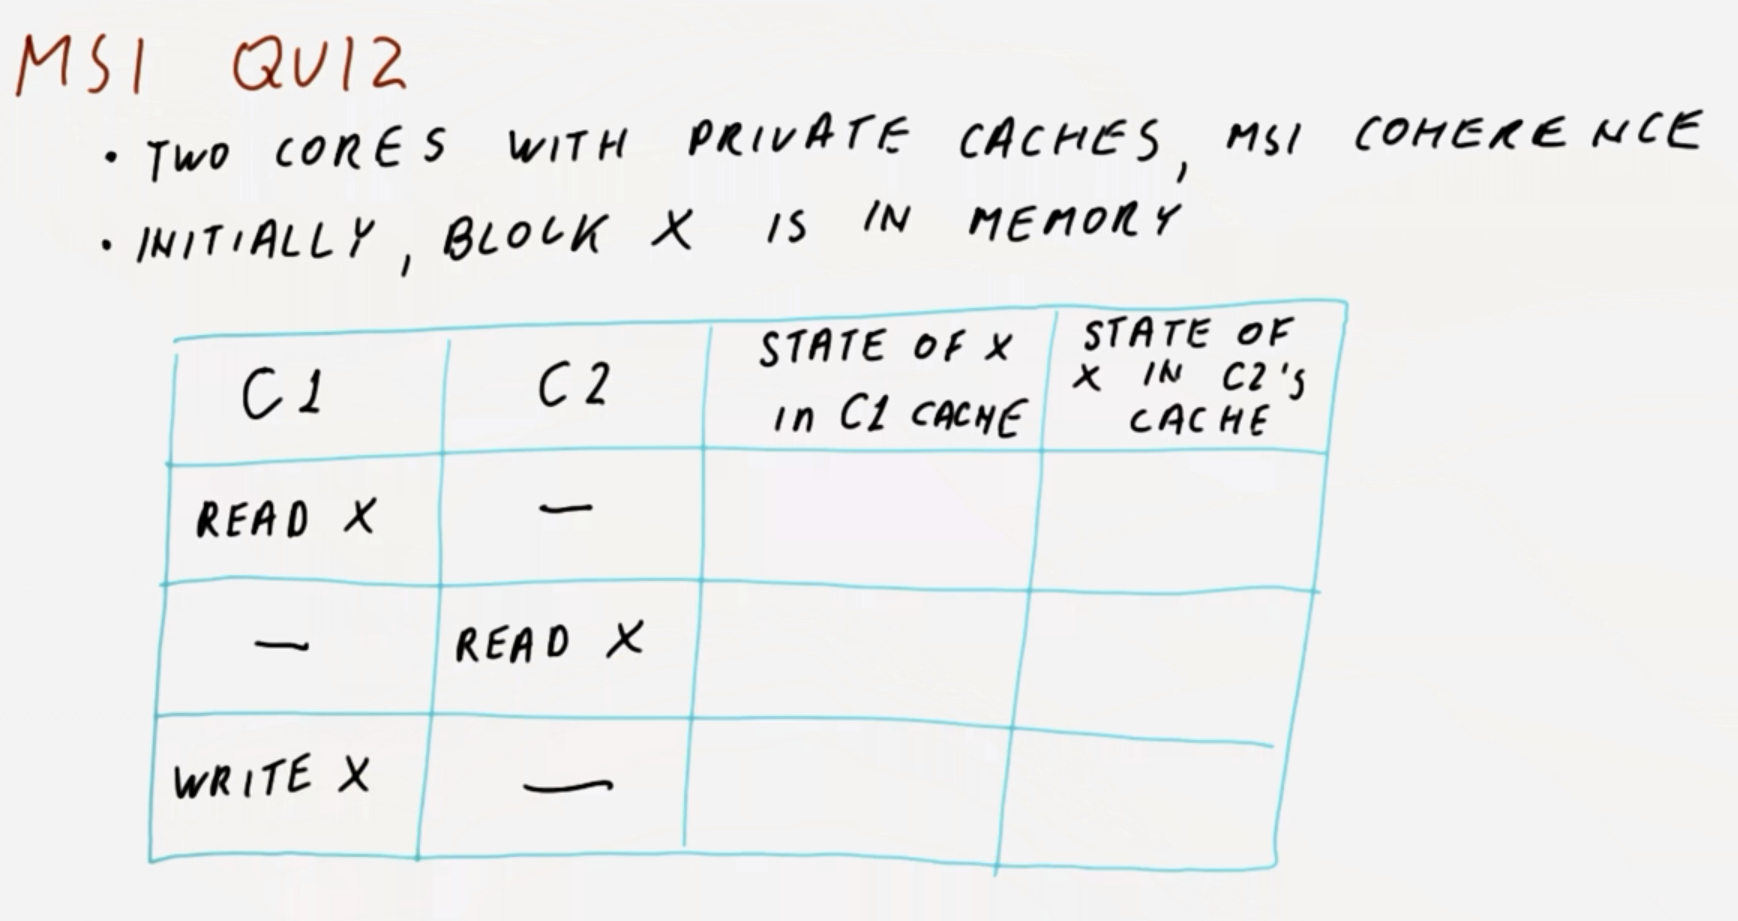 MSI QUIZ
• TWO CORES WITH PRIVATE CACHES, MSI COHERENCE
• INITIALLY, BLOCK X IS IN MEMORY
C1
C2
STATE OF X
in C1 CACHE
STATE OF
X IN C2's
CACHE
READ X
—
—
READ X
WRITE X
—